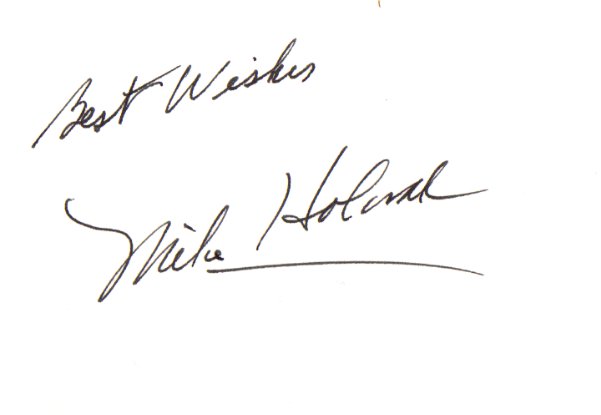 Best Wishes
Mike Holovak